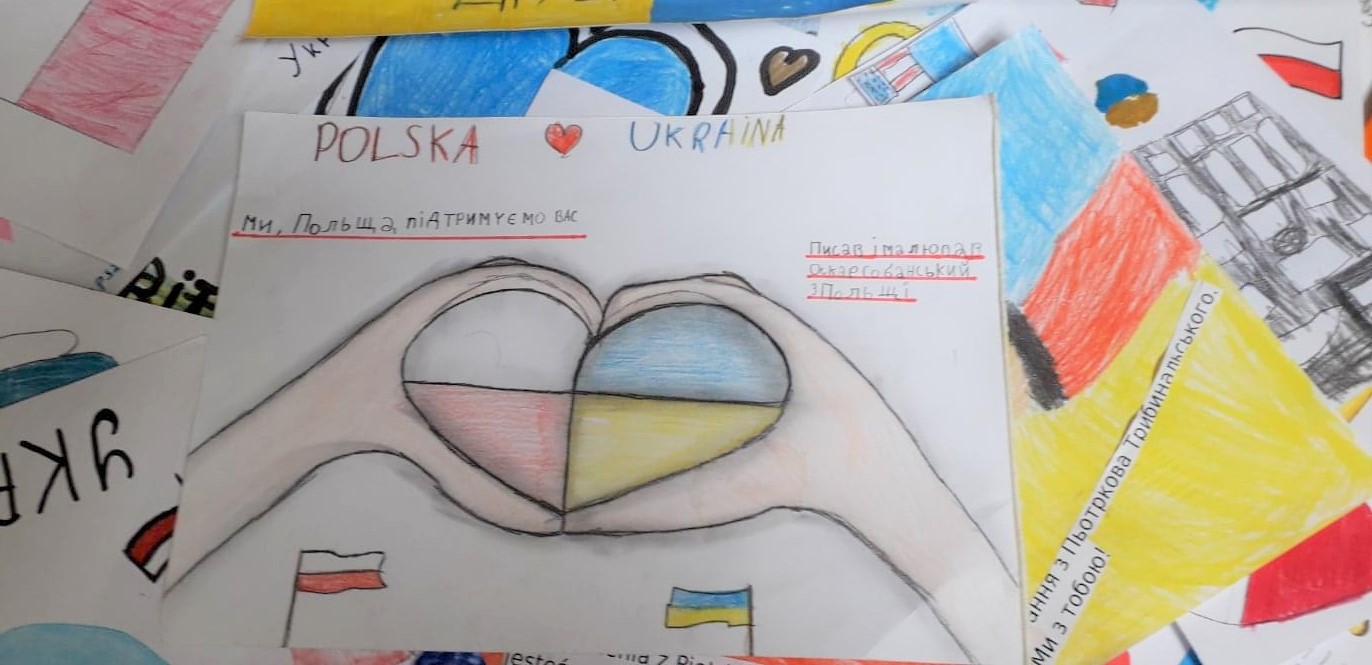 POLSKA ❤ UKRAINA
Ми, Польща, підтримуємо вас
Писав і малював
Оскар
з Польщі
УКР
УКР
ання з Пьотркова Трибинальського.
Ми з тобою!